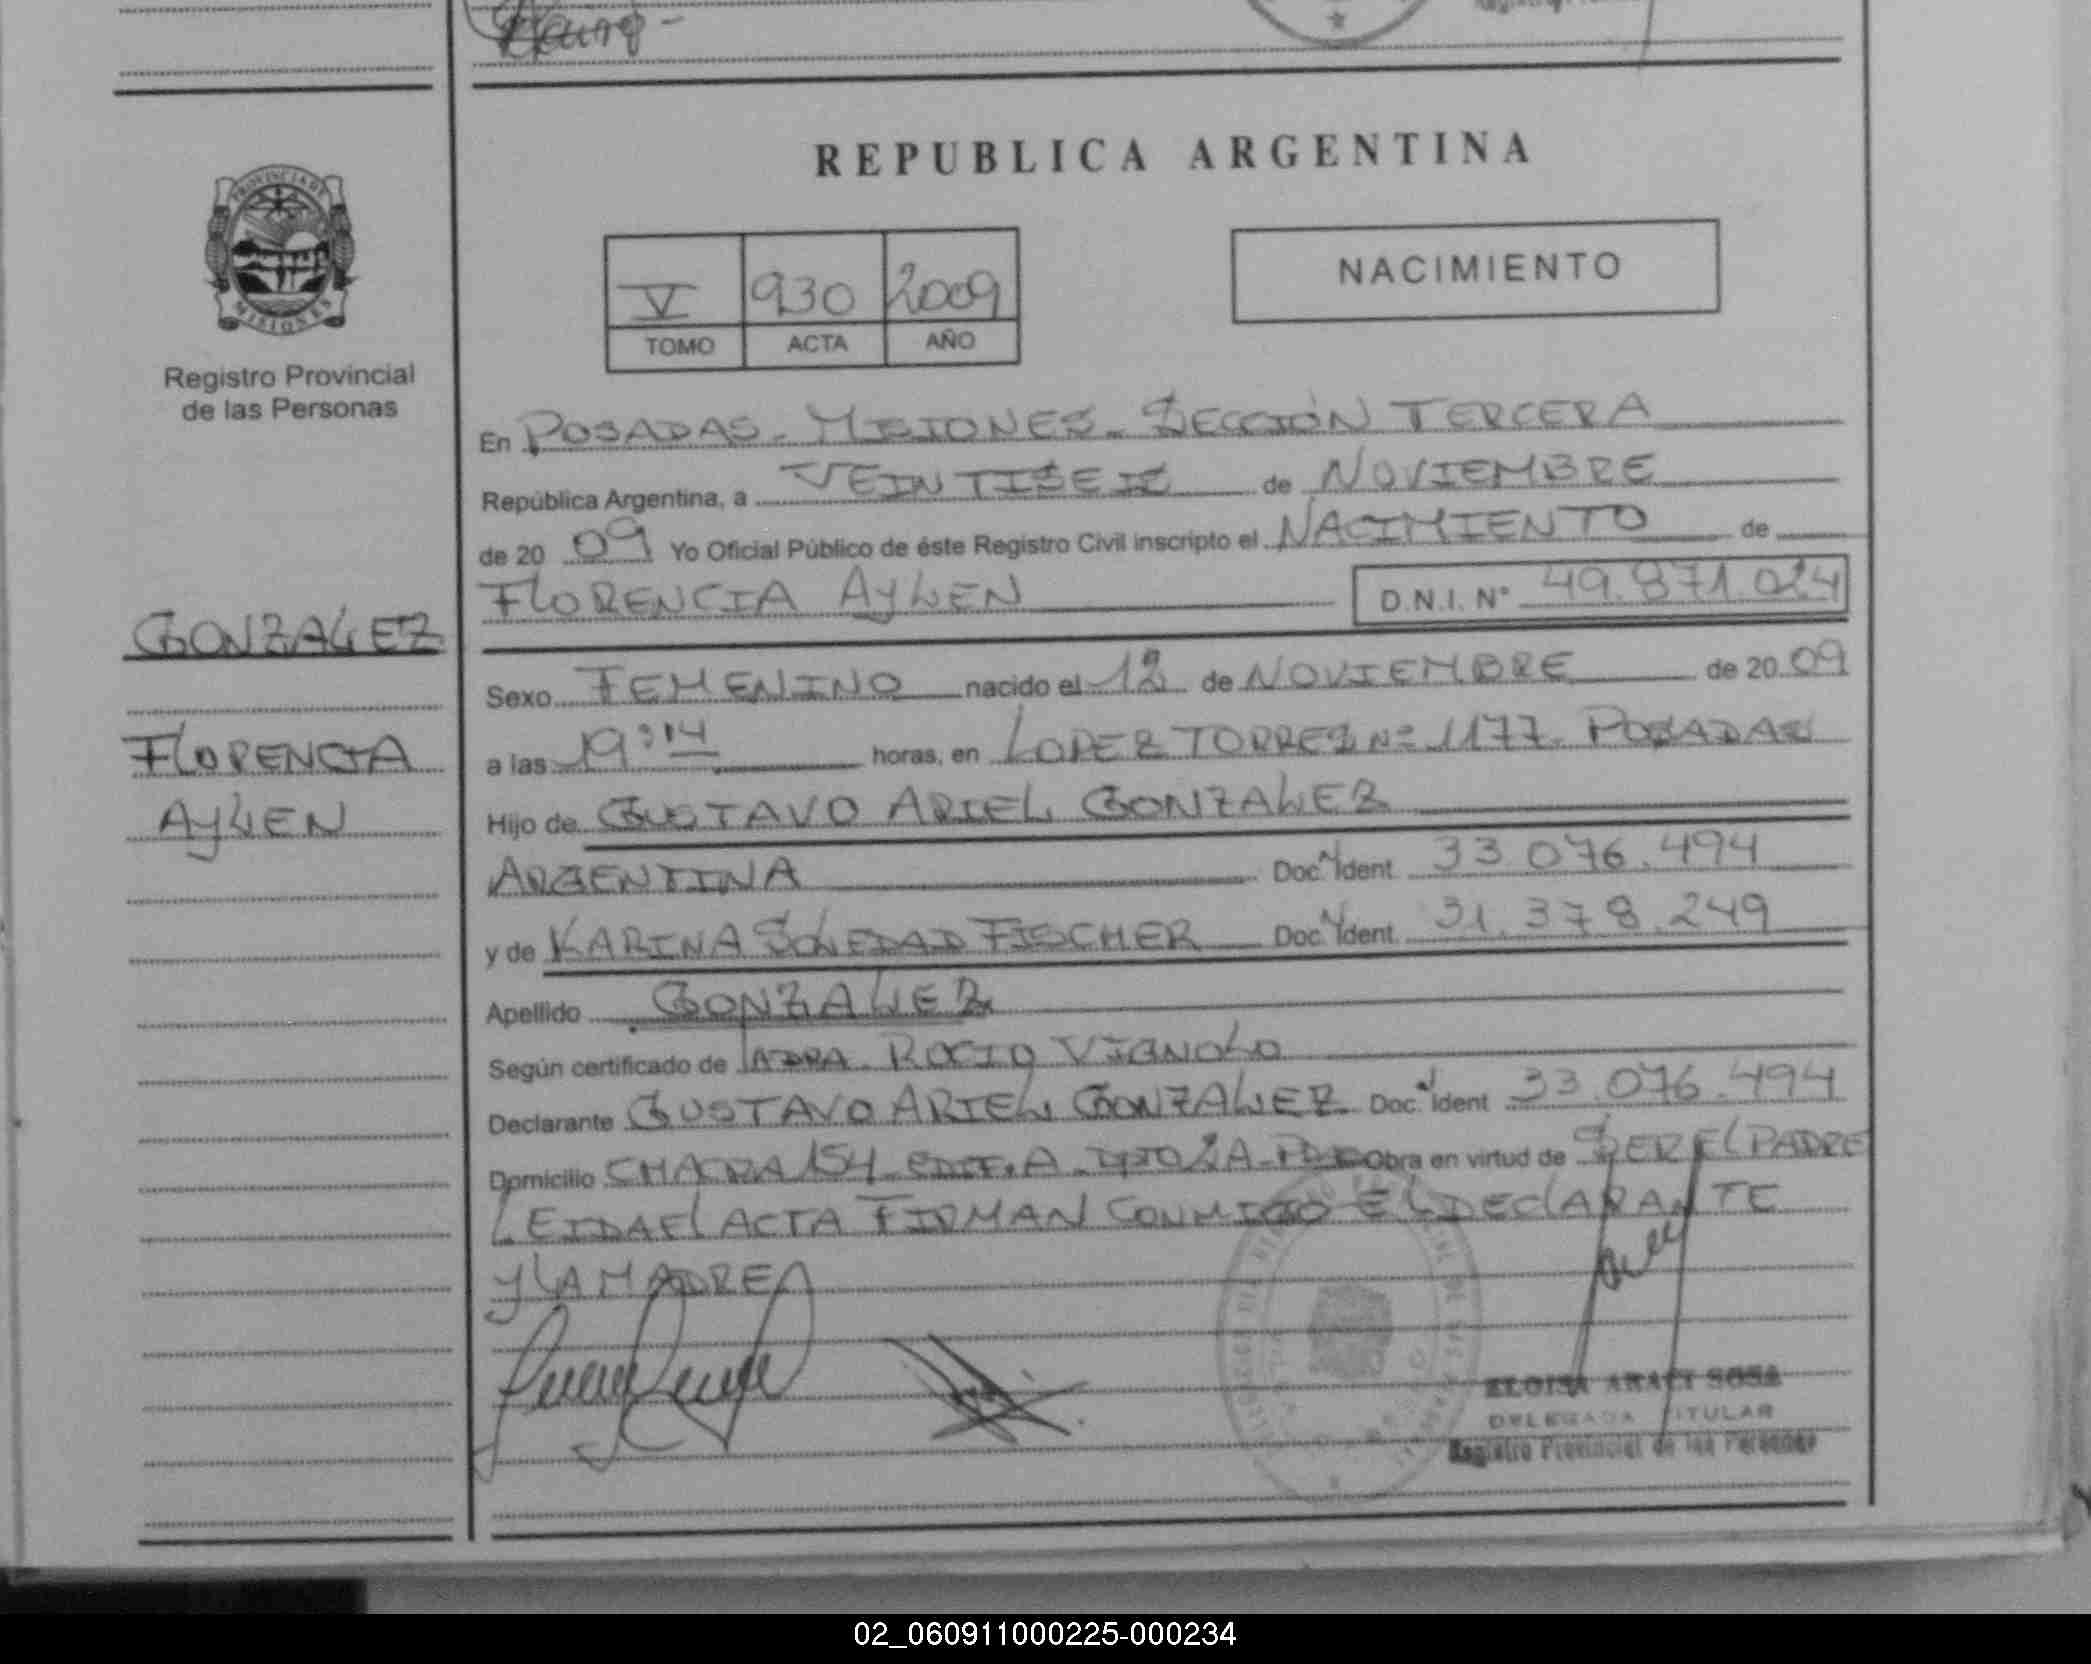 REPUBLICA ARGENTINA
PROVINCIA DE
MISIONES
Registro Provincial
de las Personas
V 930 2009
TOMO ACTA AÑO
NACIMIENTO
En POSADAS - MISIONES - SECCIÓN TERCERA
República Argentina, a VEINTISEIS de NOVIEMBRE
de 20 09 Yo Oficial Público de éste Registro Civil inscripto el NACIMIENTO de
FLORENCIA AYLEN D.N.I. N° 49.871.024
GONZALEZ
FLORENCIA
AYLEN
Sexo FEMENINO nacido el 12 de NOVIEMBRE de 20 09
a las 19:14 horas, en LOPEZ TORRES Nº 1177 - POSADAS
Hijo de GUSTAVO ARIEL GONZALEZ
ARGENTINA Doc. N Ident 33.076.494
y de KARINA SOLEDAD FISCHER Doc. N Ident 31.378.249
Apellido GONZALEZ
Según certificado de ROCIO VIGNOLO
Declarante GUSTAVO ARIEL GONZALEZ Doc. N Ident 33.076.494
Domicilio CHACRA 154 EDIF. A DPTO 2A Obra en virtud de SER EL PADRE
LEIDA EL ACTA FIRMAN CONMIGO EL DECLARANTE
Y LA MADRE
ELOISA ARACI SOSA
DELEGADA TITULAR
Registro Provincial de las Personas
02_060911000225-000234